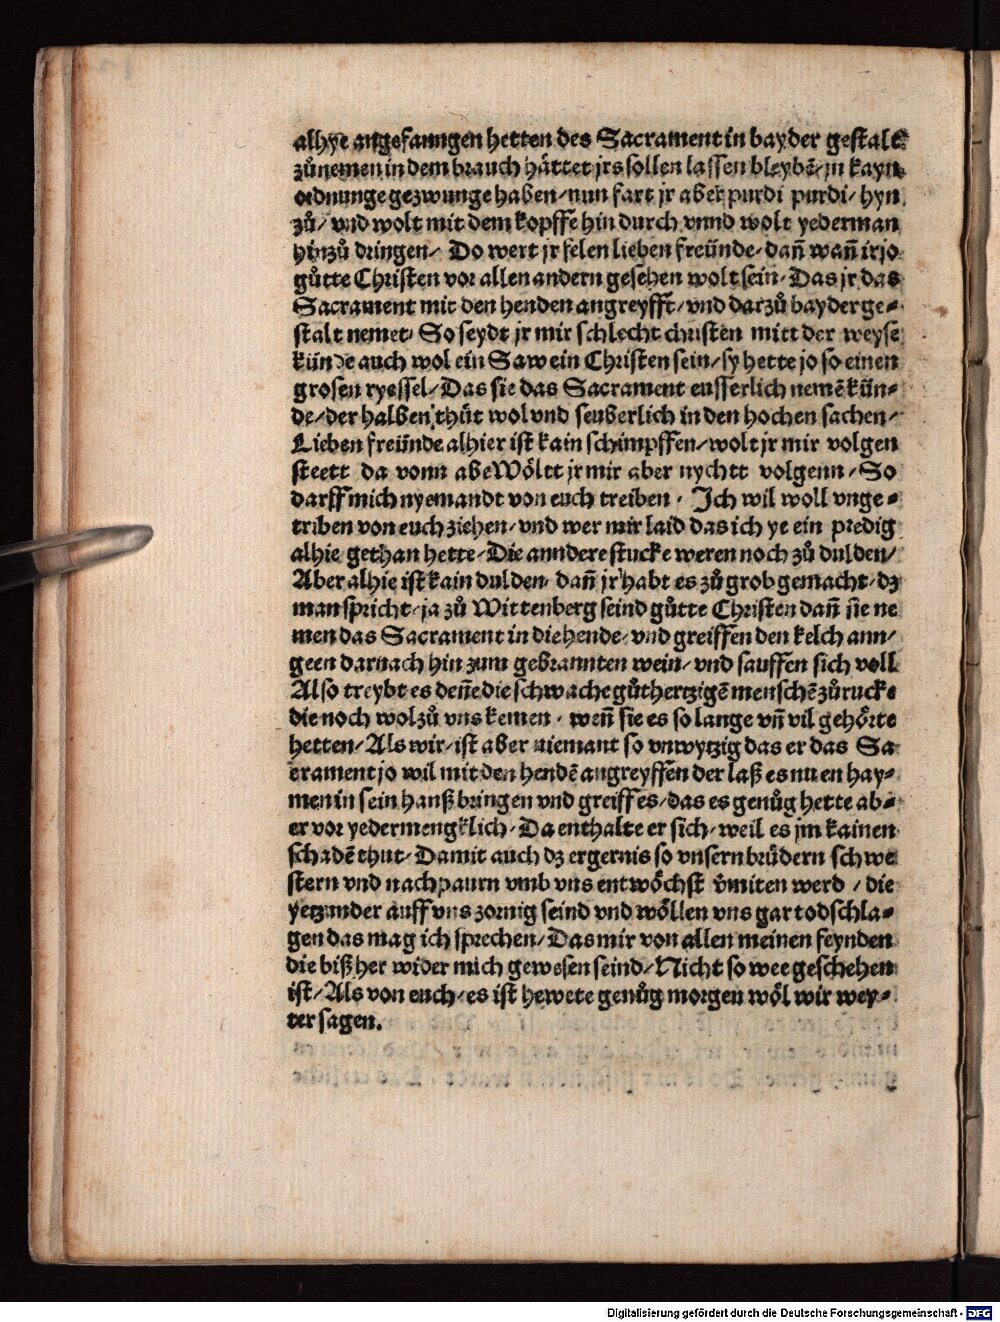 alhye angefanngen hetten des Sacrament in bayder gestalt
zůnemen in dem brauch hättet jrs sollen lassen bleybē/in kayn
ordnunge gezwunge haben/nun fart jr aber purdi purdi/hyn
zů/vnd wolt mit dem kopffe hin durch vnnd wolt yederman
hinzů dringen/ Do wert jr felen lieben freünde/dañ wañ ir jo
gůtte Christen vor allen andern gesehen wolt sein/Das jr das
Sacrament mit den henden angreyfft/vnd darzů bayder ge⸗
stalt nemet/So seydt jr mir schlecht christen mitt der weyse
künde auch wol ein Saw ein Christen sein/sy hette jo so einen
grosen ryessel/Das sie das Sacrament eusserlich nemē kün⸗
de/der halben thůt wol vnd seuberlich in den hochen sachen/
Lieben freünde alhier ist kain schimpffen/wolt jr mir volgen
steett da vonn abe Wöltt jr mir aber nychtt volgenn/So
darff mich nyemandt von euch treiben/ Ich wil woll vnge⸗
triben von euch ziehen/vnd wer mir laid das ich ye ein predig
alhie gethan hette/Die anndere stucke weren noch zů dulden/
Aber alhie ist kain dulden/dañ jr habt es zů grob gemacht/dz
man spricht/ja zů Wittenberg seind gůtte Christen dañ sie ne
men das Sacrament in die hende/vnd greiffen den kelch ann/
geen darnach hin zum gebrannten wein/vnd sauffen sich voll
Also treybt es deñe die schwache gůthertzigē menschē zůrucke
die noch wol zů vns kemen/weñ sie es so lange vñ vil gehörte
hetten/Als wir/ist aber niemant so vnwytzig das er das Sa
crament jo wil mit den hendē angreyffen der laß es nu en hay⸗
men in sein hauß bringen vnd greiff es/das es genůg hette ab⸗
er vor yedermengklich/Da enthalte er sich/weil es jm kainen
schadē thut/Damit auch dz ergernis so vnsern brüdern schwe
stern vnd nachpaurn vmb vns entwöchst v̄miten werd / die
yetzunder auff vns zornig seind vnd wöllen vns gar todschla⸗
gen das mag ich sprechen/Das mir von allen meinen feynden
die biß her wider mich gewesen seind/Nicht so wee geschehen
ist/Als von euch/es ist hewete genůg morgen wöl wir wey⸗
ter sagen.
Digitalisierung gefördert durch die Deutsche Forschungsgemeinschaft - DFG